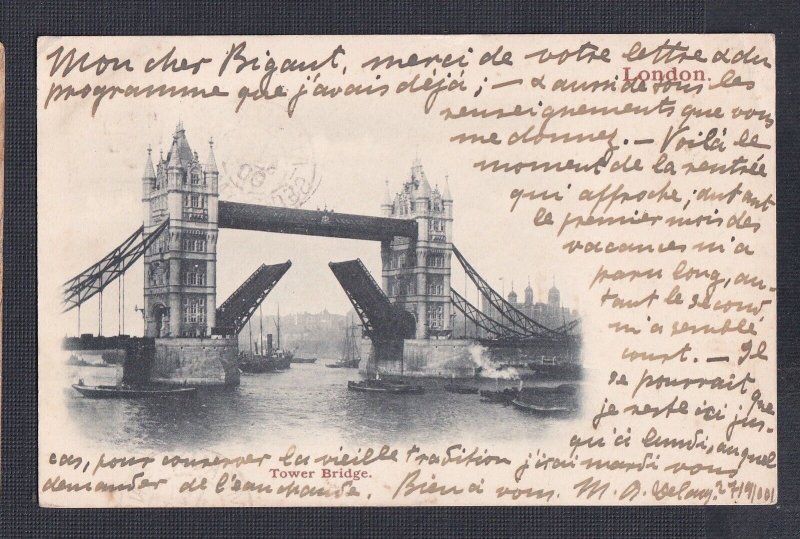 Mon cher Bigaut, merci de votre lettre & du
London.
programme que j'avais déjà ; – & aussi de tous les
renseignements que vous
me donnez. – Voilà le
moment de la rentrée
qui approche ; autant
le premier mois des
vacances m'a
paru long, au-
tant le second
m'a semblé
court. – Il
se pourrait que
je reste ici jus-
qu'ici lundi, auquel
cas, pour conserver la vieille tradition j'irai mardi vous
Tower Bridge.
demander de l'eau chaude. Bien à vous. M. D.